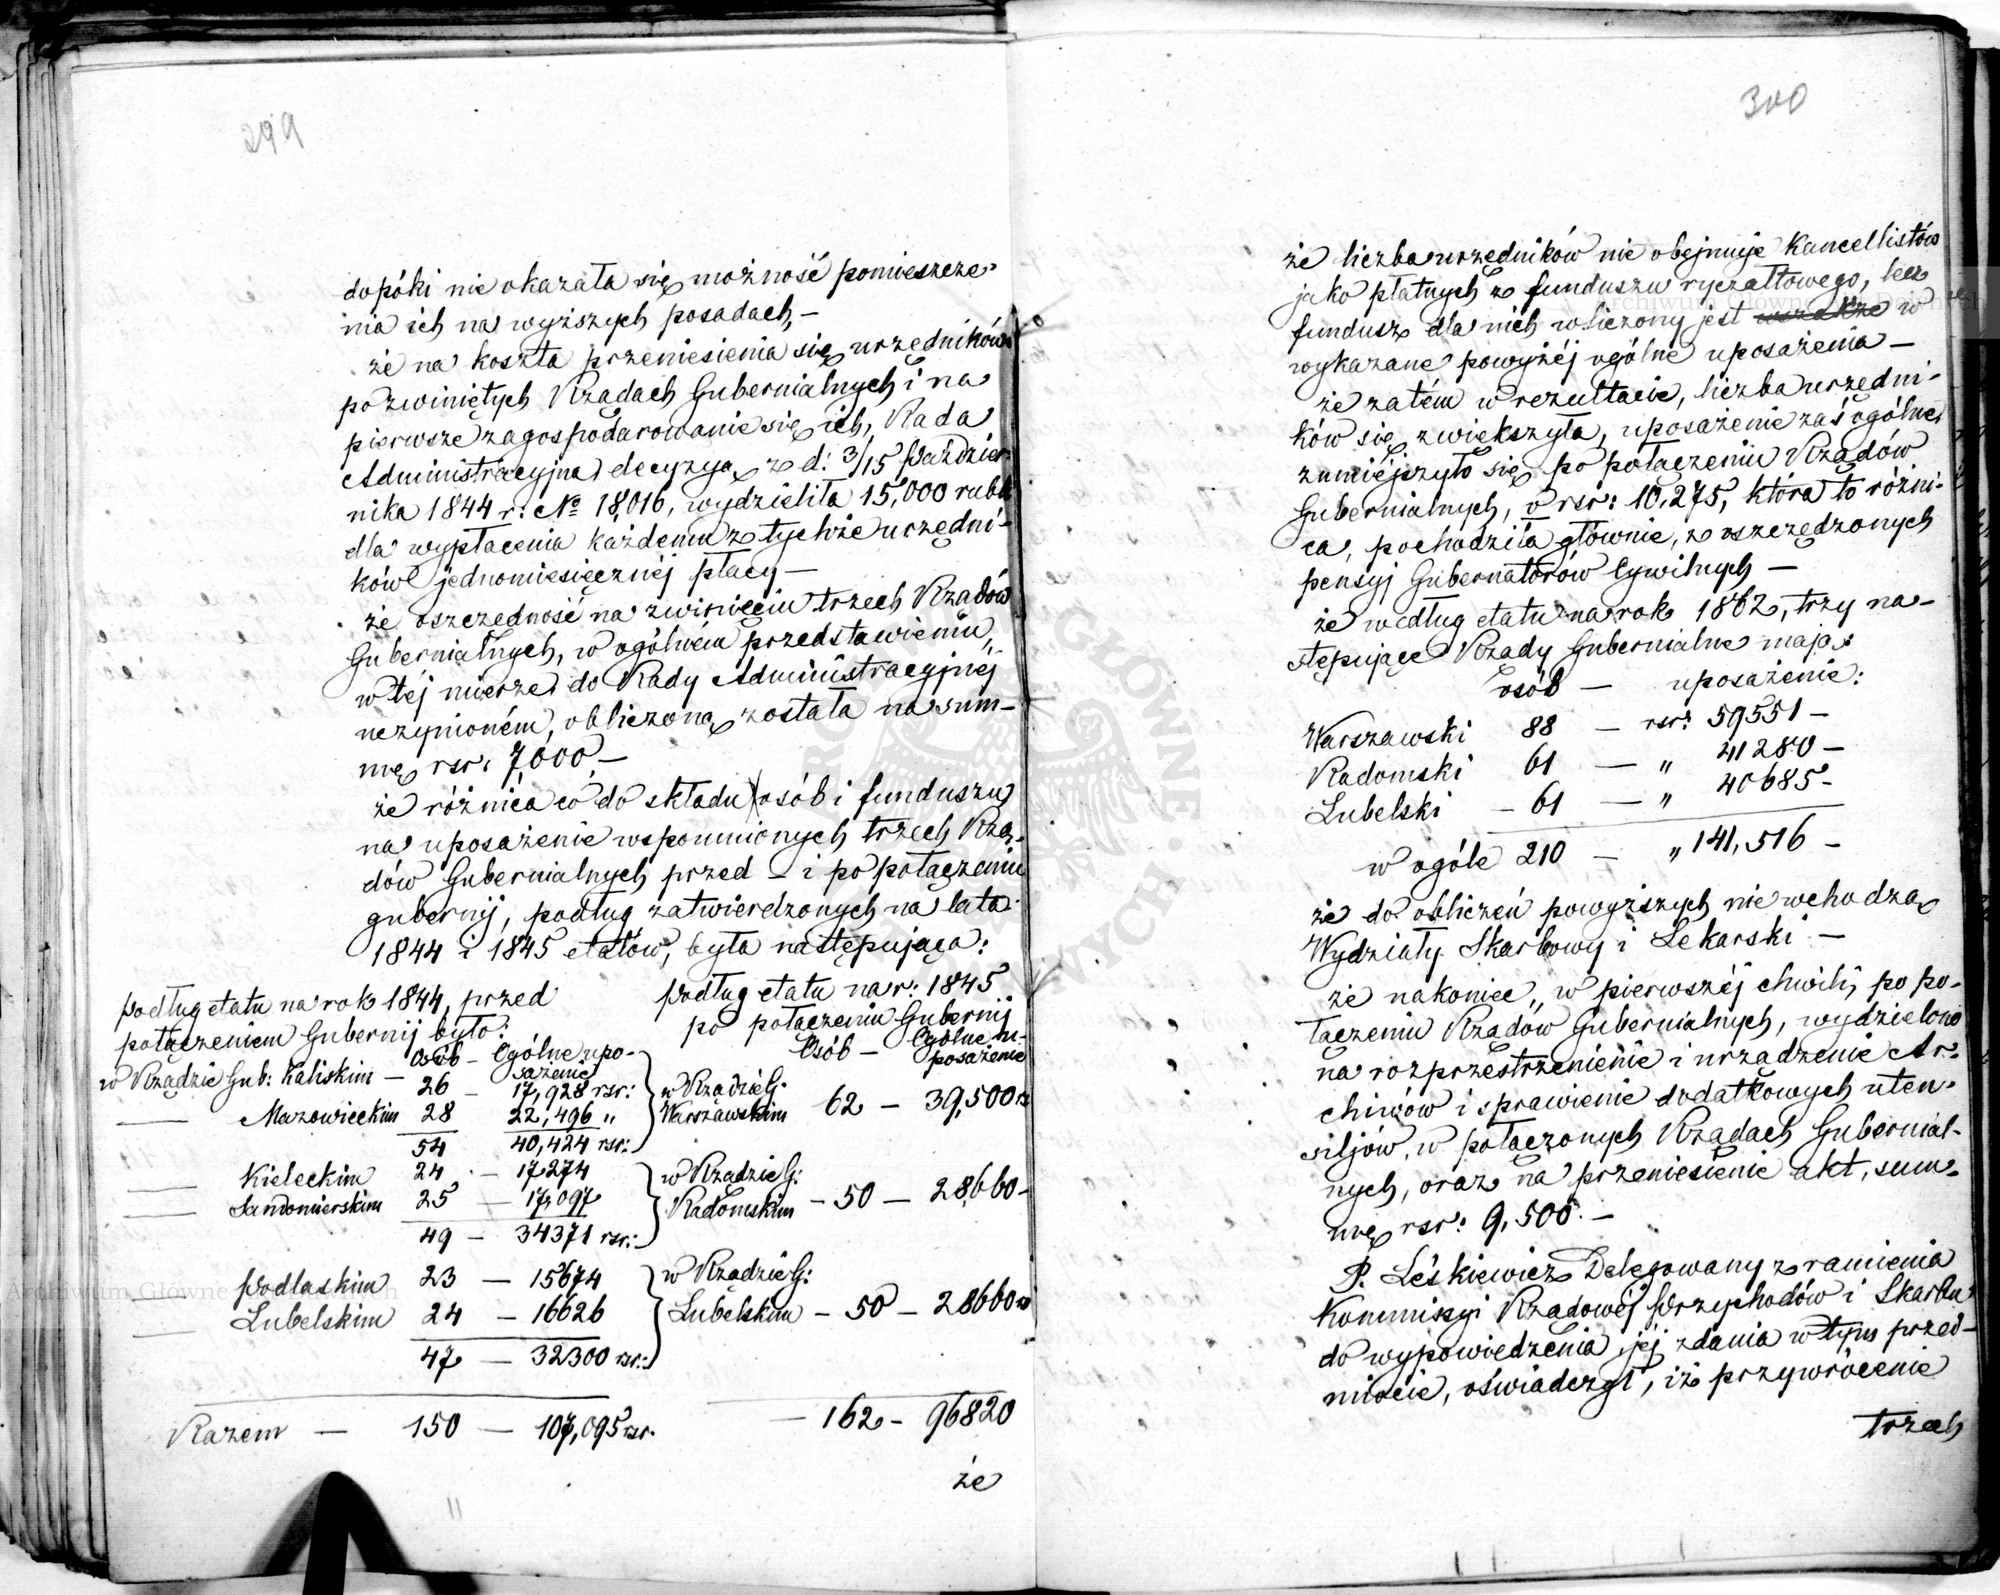 299
dopóki nie okazała się możność pomieszcze-
nia ich na wyższych posadach, —
że na koszta przeniesienia się urzędników
po zwiniętych Rządach Gubernialnych i na
pierwsze zagospodarowanie się ich, Rada
Administracyjna decyzyą z d: 3/15 Paździer-
nika 1844 r: № 18,016, wydzieliła 15,000 rubli
dla wypłacenia każdemu z tychże urzędni-
ków jednomiesięcznéj płacy —
że oszczędność na zwinięciu trzech Rządów
Gubernialnych, w ogólném przedstawieniu,
w téj mierze do Rady Administracyjnéj
uczynioném, obliczoną została na sum-
mę rsr: 7,000 —
że różnica co do składu osób i funduszu
na uposażenie wspomnionych trzech Rzą-
dów Gubernialnych przed — i po połączeniu
gubernij, podług zatwierdzonych na lata
1844 i 1845 etatów, była następująca:
Podług etatu na rok 1844, przed
połączeniem Gubernij było:
osób — Ogólne upo-
sażenie
w Rządzie Gub: Kaliskim — 26 — 17,928 rsr:
— Mazowieckim 28 22,496 „
54 40,424 rsr:
— Kieleckim 24 — 17274
— Sandomierskim 25 — 17,097
49 — 34371 rsr:
— Podlaskim 23 — 15674
— Lubelskim 24 — 16626
47 — 32300 rsr:
Razem — 150 — 107,095 rsr.
Podług etatu na r: 1845
po połączeniu Gubernij
Osób — Ogólne u-
posażenie
w Rządzie G:
Warszawskim 62 — 39,500 rs
w Rządzie G:
Radomskim — 50 — 28,660 —
w Rządzie G:
Lubelskim — 50 — 28660 rs
— 162 — 96820
że
300
że liczba urzędników nie obejmuje Kancellistów
jako płatnych z funduszu ryczałtowego, lecz
fundusz dla nich wliczony jest wszakże w
wykazane powyżéj ogólne uposażenia —
że zatém w rezultacie, liczba urzędni-
ków się zwiększyła, uposażenie zaś ogólne
zmniéjszyło się po połączeniu Rządów
Gubernialnych, o rsr: 10,275, która to różni-
ca, pochodziła głównie, z oszczędzonych
pensyj Gubernatorów Cywilnych —
że według etatu na rok 1862, trzy na-
stępujące Rządy Gubernialne mają:
osób — uposażenie:
Warszawski 88 — rsr: 59551 —
Radomski 61 — „ 41280 —
Lubelski — 61 — „ 40685 —
w ogóle 210 — „ 141,516 —
że do obliczeń powyższych nie wchodzą
Wydziały Skarbowy i Lekarski —
że nakoniec, w pierwszéj chwili, po po-
łączeniu Rządów Gubernialnych, wydzielono
na rozprzestrzenienie i urządzenie Ar-
chiwów i sprawienie dodatkowych uten-
siljów, w połączonych Rządach Gubernial-
nych, oraz na przeniesienie akt, sum-
mę rsr: 9,500. —
P. Leśkiewicz Delegowany z ramienia
Kommissyi Rządowéj Przychodów i Skarbu
do wypowiedzenia jéj zdania w tym przed-
miocie, oświadczył, iż przywrócenie
trzech
Archiwum Główne Akt Dawnych